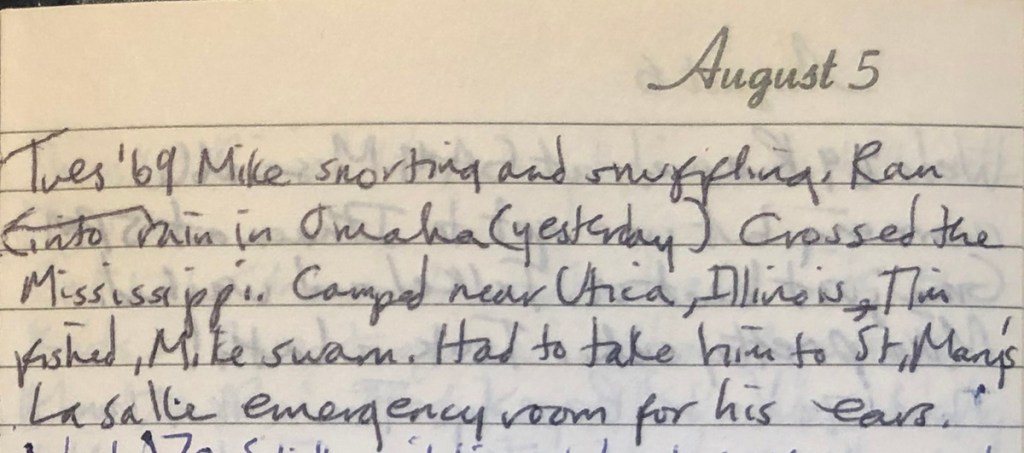 August 5
Tues '69 Mike snorting and snuffling. Ran
(into rain in Omaha (yesterday) Crossed the
Mississippi. Camped near Utica, Illinois, Tim
fished, Mike swam. Had to take him to St. Mary's
La Salle emergency room for his ears.